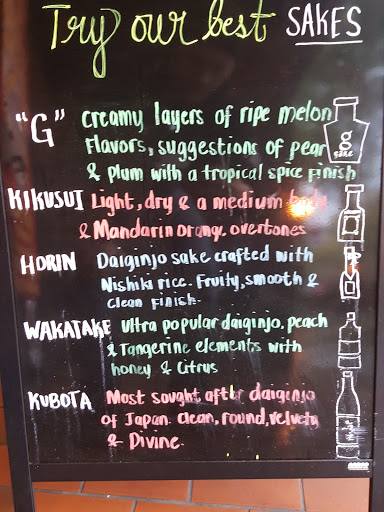 Try our best SAKES
"G" creamy layers of ripe melon
Flavors, suggestions of pear
& plum with a tropical spice finish
g
sake
KIKUSUI Light, dry & a medium body
& Mandarin orange overtones
HORIN Daiginjo sake crafted with
Nishiki rice. Fruity, smooth &
clean finish.
WAKATAKE Ultra popular daiginjo, peach
& Tangerine elements with
honey & Citrus
KUBOTA Most sought after daiginjo
of Japan. clean, round, velvety
& Divine.